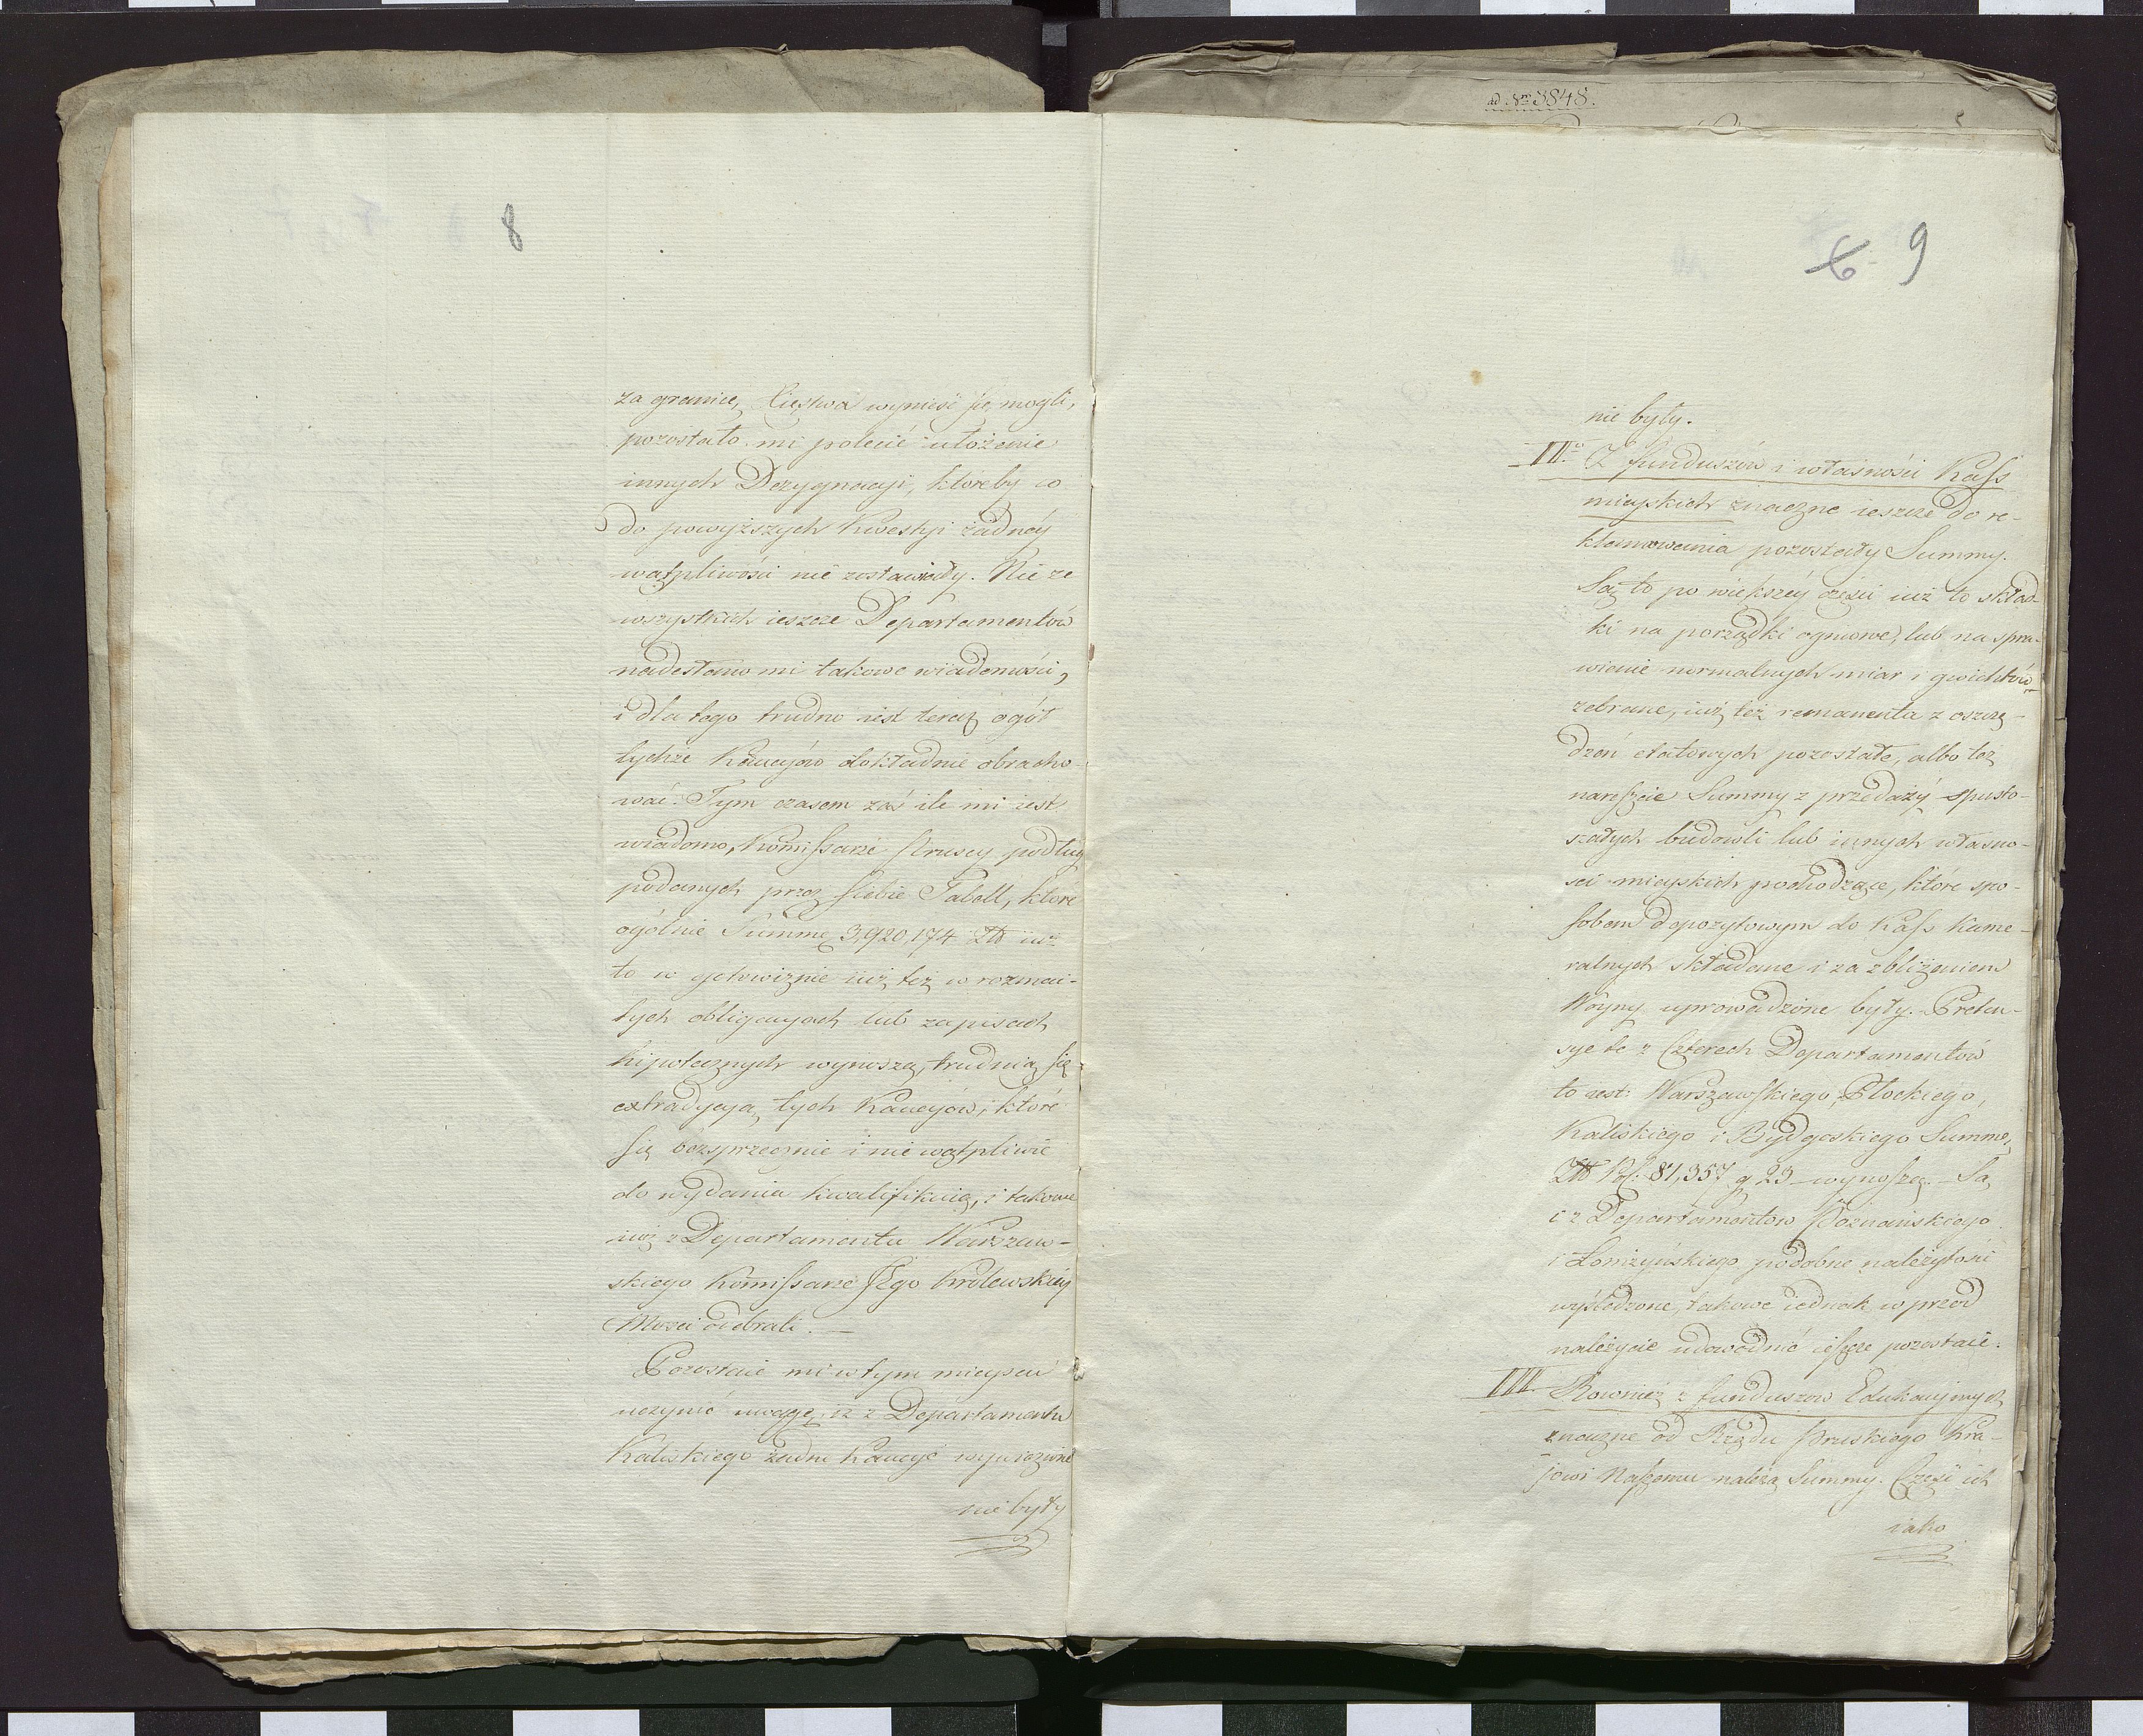 ad Nrm 3848.
8
za granicę Xięstwa wynieść się mogli,
pozostało mi polecić ułożenie
innych Dezygnacyi, któreby co
do powyższych Kwestyi żadnéy
wątpliwości nie zostawiały. Nie ze
wszystkich ieszcze Departamentów
nadesłano mi takowe wiadomości,
i dla tego trudno iest teraz ogół
tychże Kaucyów dokładnie obracho-
wać. Tym czasem zaś ile mi iest
wiadomo, Kommissarze Pruscy podług
podanych przez siebie Tabell, które
ogólnie Summę 3,920,174 Zł iuż
to w gotowiznie iuż też w rozmai-
tych obligacyach lub zapisach
hipotecznych wynoszą, trudnią się
extradycyą tych Kaucyów, które
się bezsprzecznie i nie wątpliwie
do wydania kwalifikuią, i takowe
iuż z Departamentu Warszaw-
skiego Kommissarze JEgo Królewskiéy
Mości odebrali. —
Pozostaie mi w tym mieyscu
uczynić uwagę, iż z Departamentu
Kaliskiego żadne Kaucye wywiezione
nie były
6 9
nie były.
II. Z funduszów i własności Kass
mieyskich znaczne ieszcze do re-
klamowania pozostały Summy.
Są to po większéy części iuż to skład-
ki na porządki ogniowe, lub na spra-
wienie normalnych miar i gwichtów
zebrane, iuż też remanenta z oszczę-
dzeń etatowych pozostałe, albo też
nareszcie Summy z przedaży spusto-
szałych budowli lub innych własno-
ści mieyskich pochodzące, które spo-
sobem depozytowym do Kass Kame-
ralnych składane i za zbliżeniem
Woyny uprowadzone były. Preten-
sye te z Czterech Departamentów
to iest: Warszawskiego, Płockiego,
Kaliskiego i Bydgoskiego Summę
Zł Pol: 81,357 g 23 wynoszą. — Są
i z Departamentów Poznańskiego
i Łomżyńskiego podobne należytości
wyśledzone, takowe iednak w przód
należycie udowodnić ieszcze pozostaie.
III. Rownież z funduszow Edukacyinych
znaczne od Rządu Pruskiego Kra-
jowi Naszemu należą Summy. Część ich
iako